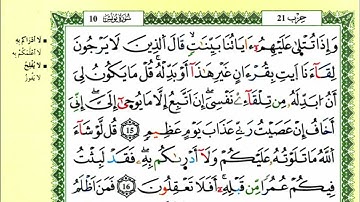 حِزْب 21
سُورَةُ يُونُسَ 10
وَإِذَا تُتْلَىٰ عَلَيْهِمُۥٓ ءَايَاتُنَا بَيِّنَٰتٖ قَالَ ٱلَّذِينَ لَا يَرْجُونَ
لِقَآءَنَا ٱيتِ بِقُرْءَانٍ غَيْرِ هَٰذَآ أَوْ بَدِّلْهُۖ قُلْ مَا يَكُونُ لِيَ
أَنُ ابَدِّلَهُۥ مِن تِلْقَآءِےْ نَفْسِيَۖ إِنَ اَتَّبِعُ إِلَّا مَا يُوحَىٰٓ إِلَيَّۖ إِنِّيَ
أَخَافُ إِنْ عَصَيْتُ رَبِّي عَذَابَ يَوْمٍ عَظِيمٖۖ 15 قُل لَّوْ شَآءَ
ٱللَّهُ مَا تَلَوْتُهُۥ عَلَيْكُمْ وَلَآ أَدْر۪ىٰكُم بِهِۦۖ فَقَدْ لَبِثْتُ
فِيكُمْ عُمُراٗ مِّن قَبْلِهِۦٓۖ أَفَلَا تَعْقِلُونَۖ 16 فَمَنَ اَظْلَمُ